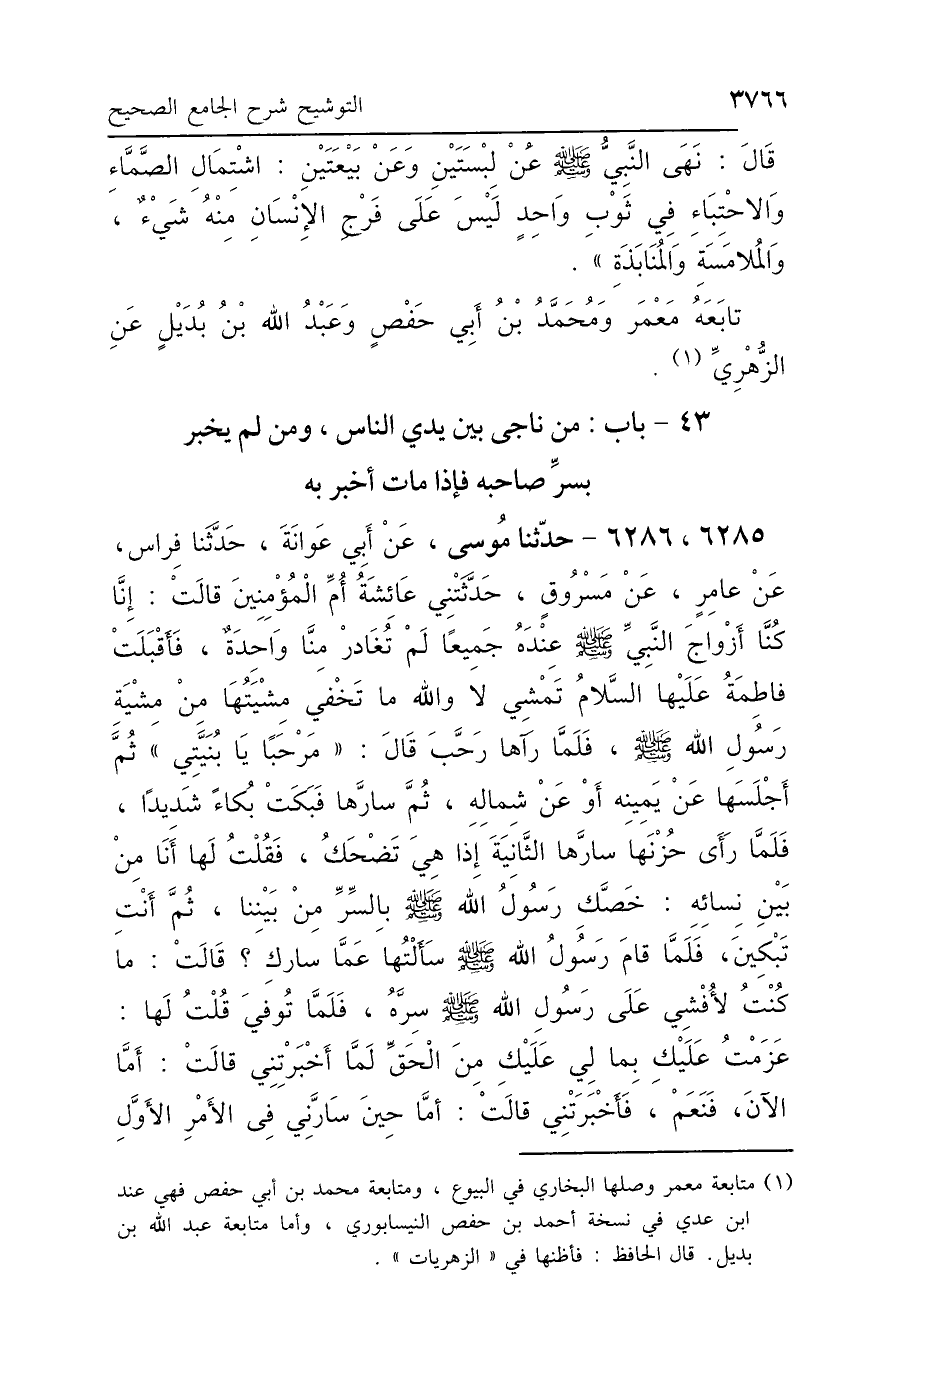 ٣٧٦٦ التوشيح شرح الجامع الصحيح
قَالَ : نَهَى النَّبِيُّ ﷺ عَنْ لِبْسَتَيْنِ وَعَنْ بَيْعَتَيْنِ : اشْتِمَالِ الصَّمَّاءِ
وَالاحْتِبَاءِ فِي ثَوْبٍ وَاحِدٍ لَيْسَ عَلَى فَرْجِ الإِنْسَانِ مِنْهُ شَيْءٌ ،
وَالْمُلامَسَةِ وَالْمُنَابَذَةِ » .
تابَعَهُ مَعْمَر وَمُحَمَّدُ بْنُ أَبِي حَفْصٍ وَعَبْدُ الله بْنُ بُدَيْلٍ عَنِ
الزُّهْرِيِّ (١) .
٤٣ - باب : من ناجى بين يدي الناس ، ومن لم يخبر
بسرِّ صاحبه فإذا مات أخبر به
٦٢٨٥ ، ٦٢٨٦ - حدّثنا مُوسى ، عَنْ أَبِي عَوانَةَ ، حَدَّثَنا فِراس،
عَنْ عامِرٍ ، عَنْ مَسْرُوقٍ ، حَدَّثَتْنِي عَائِشَةُ أُمِّ الْمُؤْمِنِينَ قالَتْ : إِنَّا
كُنَّا أَزْواجَ النَّبِيِّ ﷺ عِنْدَهُ جَمِيعًا لَمْ تُغَادَرْ مِنَّا وَاحِدَةٌ ، فَأَقْبَلَتْ
فاطِمَةُ عَلَيْها السَّلامُ تَمْشِي لا والله ما تَخْفي مِشْيَتُهَا مِنْ مِشْيَةِ
رَسُولِ الله ﷺ ، فَلَمَّا رَآها رَحَّبَ قَالَ : « مَرْحَبًا يَا بُنَيَّتِي » ثُمَّ
أَجْلَسَها عَنْ يَمِينِهِ أَوْ عَنْ شمالِهِ ، ثُمَّ سارَّها فَبَكَتْ بُكاءً شَدِيدًا ،
فَلَمَّا رَأَى حُزْنَها سارَّها الثَّانِيَةَ إِذا هِيَ تَضْحَكُ ، فَقُلْتُ لَها أَنَا مِنْ
بَيْنِ نِسائِهِ : خَصَّكِ رَسُولُ الله ﷺ بِالسِّرِّ مِنْ بَيْنِنا ، ثُمَّ أَنْتِ
تَبْكِينَ، فَلَمَّا قامَ رَسُولُ الله ﷺ سَأَلْتُها عَمَّا سارك ؟ قالَتْ : ما
كُنْتُ لأُفْشِي عَلَى رَسُولِ الله ﷺ سِرَّهُ ، فَلَمَّا تُوفِيَ قُلْتُ لَها :
عَزَمْتُ عَلَيْكِ بِما لِي عَلَيْكِ مِنَ الْحَقِّ لَمَّا أَخْبَرْتِنِي قالَتْ : أَمَّا
الآنَ، فَنَعَمْ ، فَأَخْبَرَتْنِي قالَتْ : أمَّا حِينَ سَارَّنِي فِى الأَمْرِ الأَوَّلِ
(١) متابعة معمر وصلها البخاري في البيوع ، ومتابعة محمد بن أبي حفص فهي عند
ابن عدي في نسخة أحمد بن حفص النيسابوري ، وأما متابعة عبد الله بن
بديل. قال الحافظ : فأظنها في « الزهريات » .